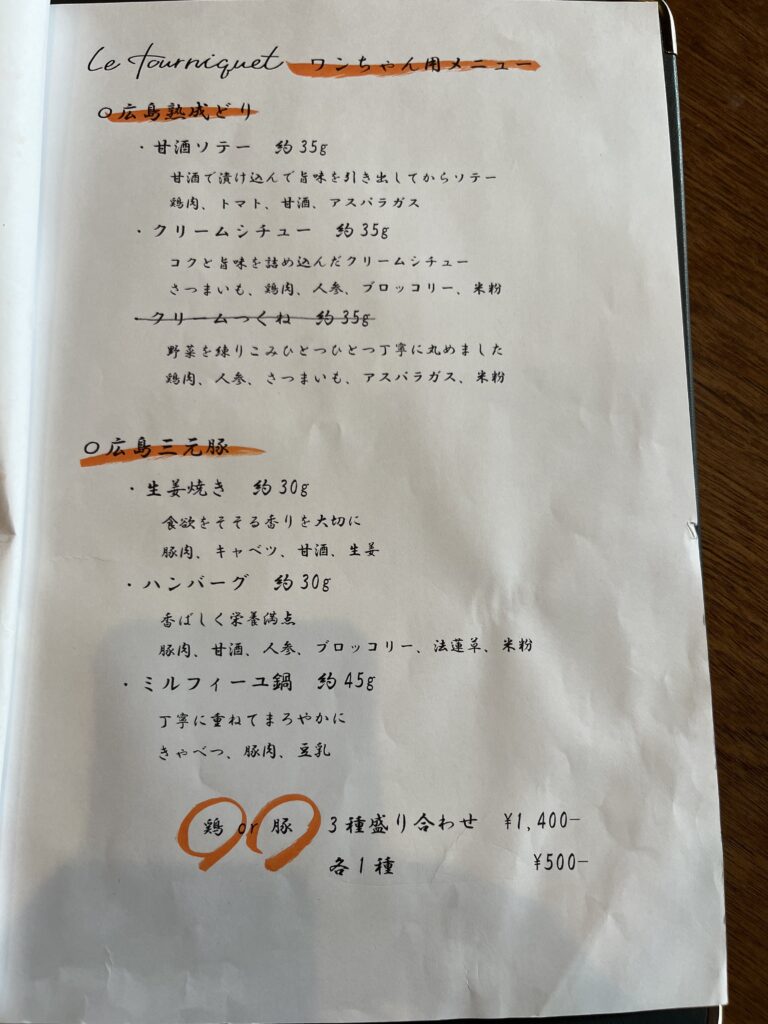 Le Tourniquet ワンちゃん用メニュー
○広島熟成どり
・甘酒ソテー 約35g
甘酒で漬け込んで旨味を引き出してからソテー
鶏肉、トマト、甘酒、アスパラガス
・クリームシチュー 約35g
コクと旨味を詰め込んだクリームシチュー
さつまいも、鶏肉、人参、ブロッコリー、米粉
・クリームつくね 約35g
野菜を練りこみひとつひとつ丁寧に丸めました
鶏肉、人参、さつまいも、アスパラガス、米粉
○広島三元豚
・生姜焼き 約30g
食欲をそそる香りを大切に
豚肉、キャベツ、甘酒、生姜
・ハンバーグ 約30g
香ばしく栄養満点
豚肉、甘酒、人参、ブロッコリー、法蓮草、米粉
・ミルフィーユ鍋 約45g
丁寧に重ねてまろやかに
きゃべつ、豚肉、豆乳
鶏 or 豚 3種盛り合わせ ¥1,400−
各1種 ¥500−